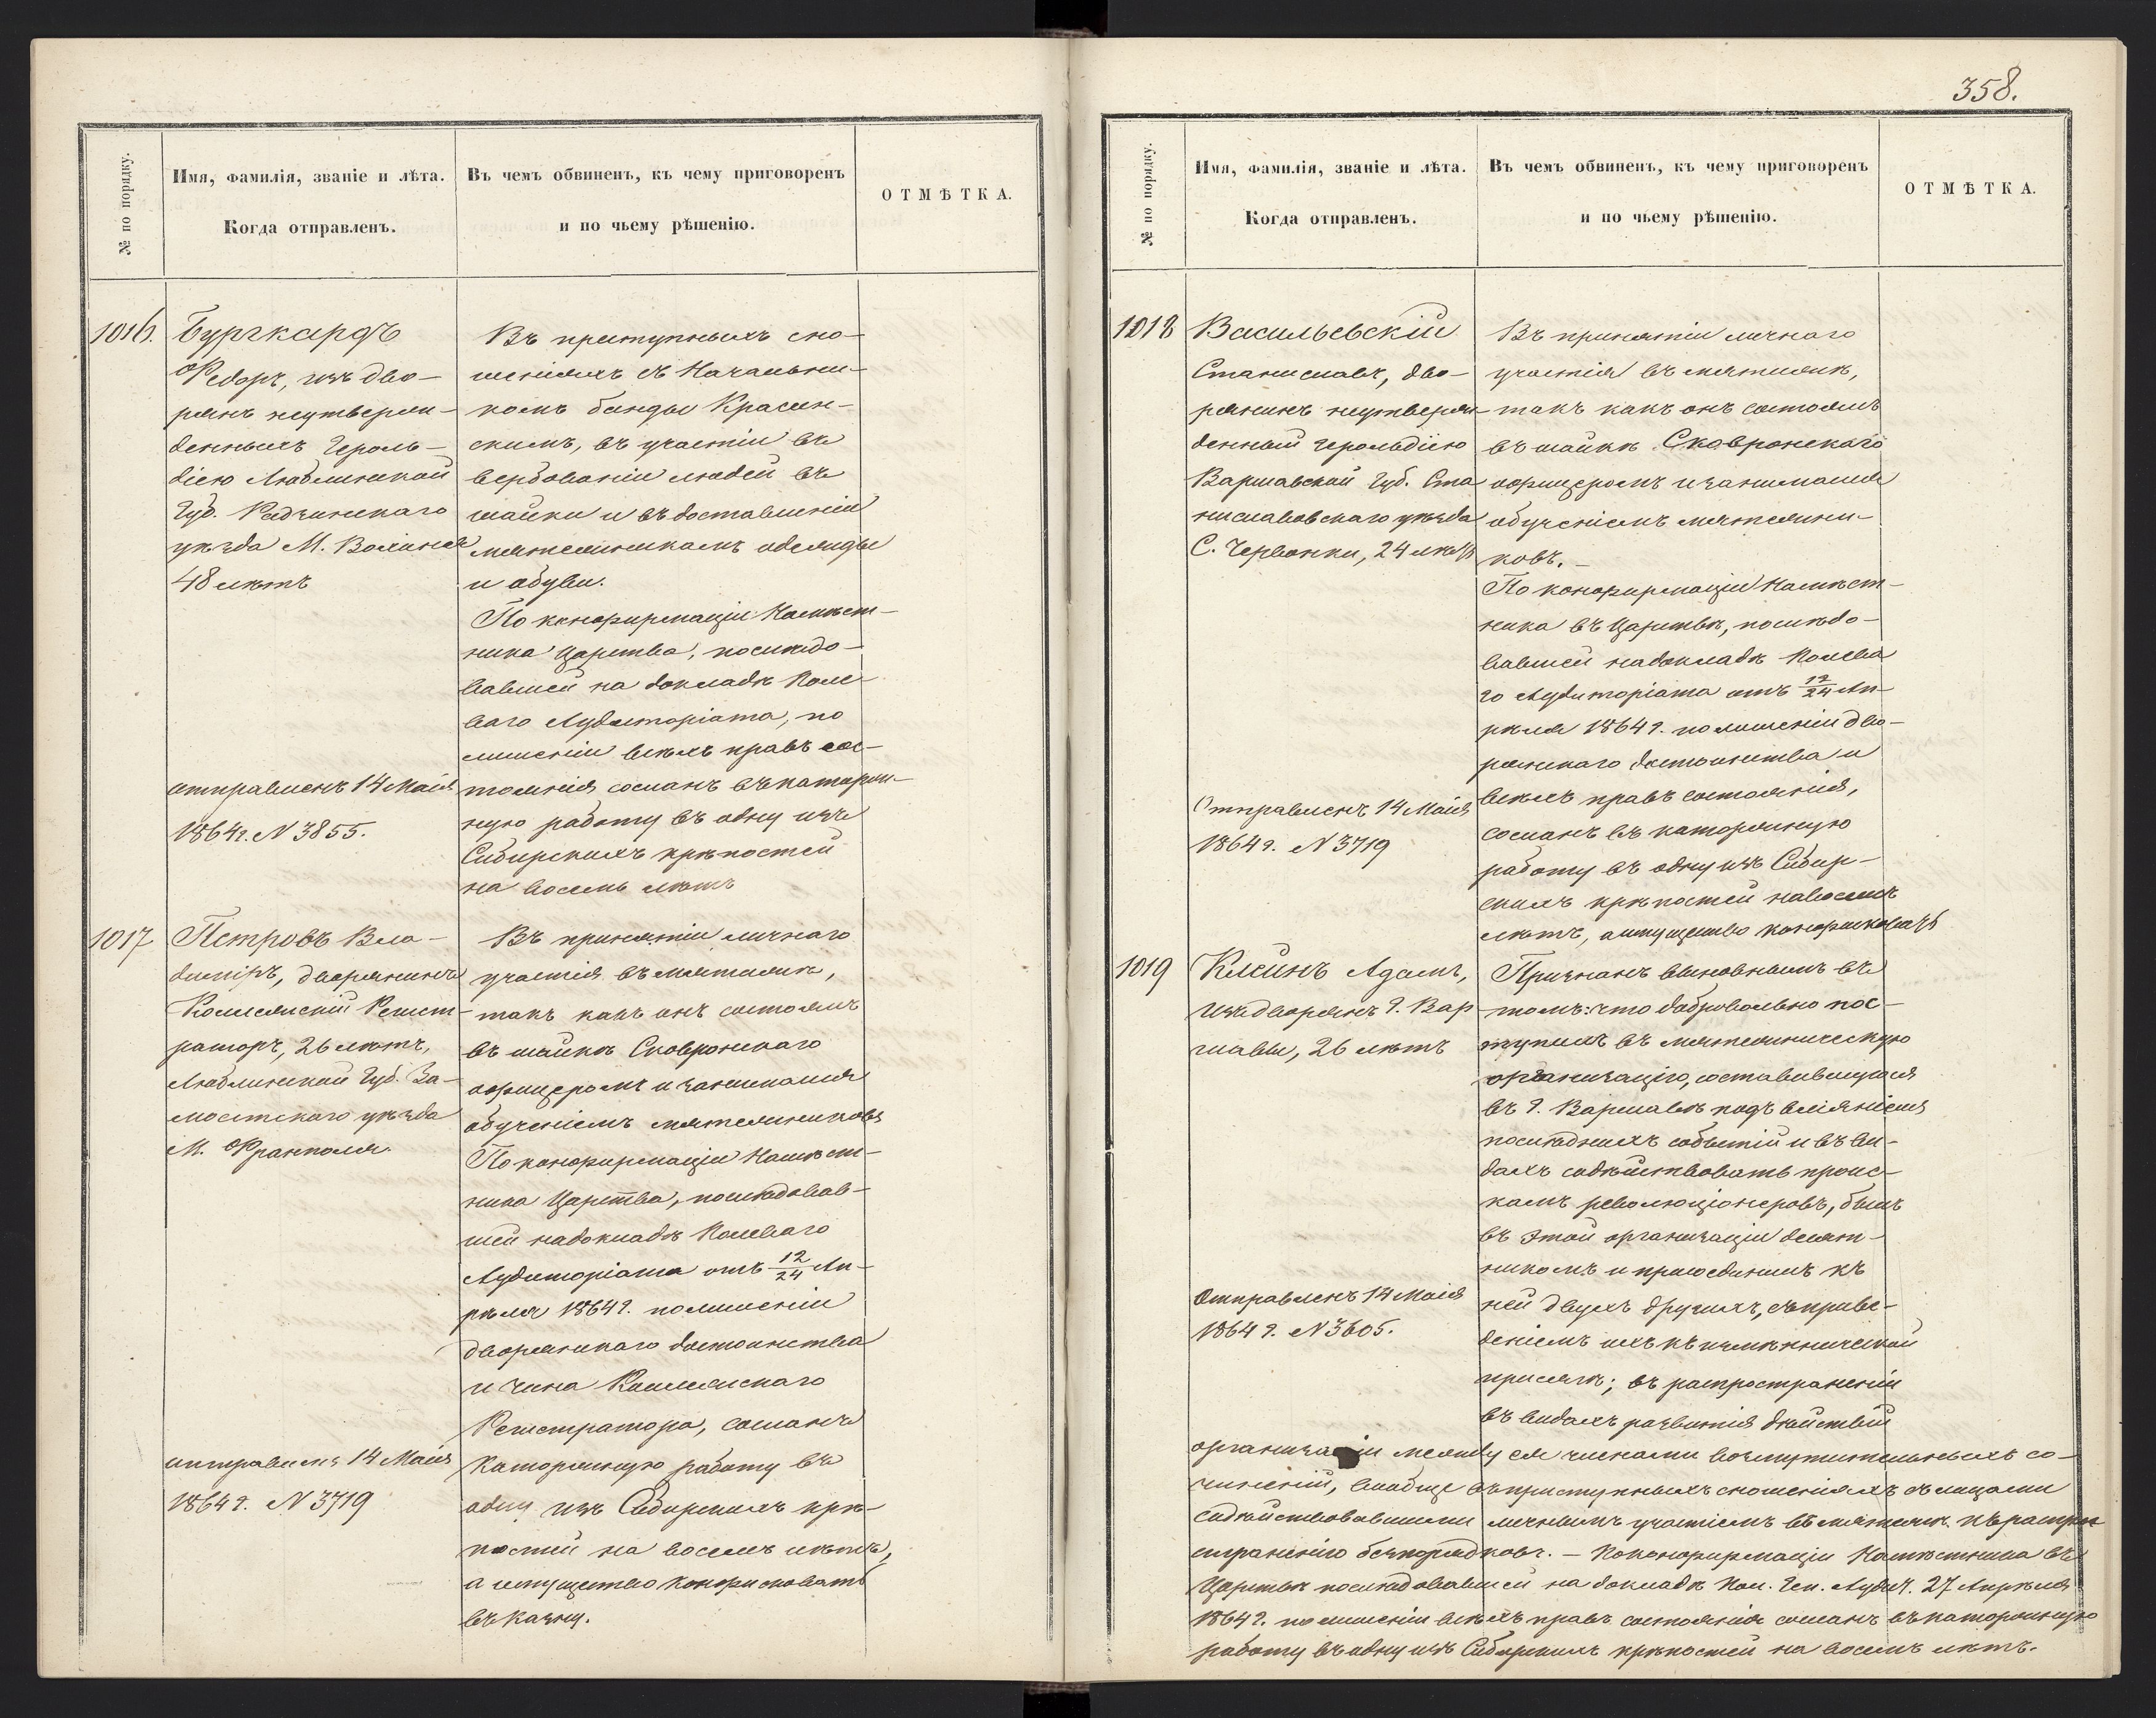 358.
№ по порядку.
Имя, фамилія, званіе и лѣта.
Когда отправленъ.
Въ чемъ обвиненъ, къ чему приговоренъ
и по чьему рѣшенію.
ОТМѢТКА.
1016.
Бургкардъ
Ѳедоръ, изъ дво-
рянъ неутверж-
денныхъ Героль-
діею Люблинской
Губ. Радзинскаго
уѣзда М. Вохыня
48 лѣтъ
отправленъ 14 Маія
1864 г. N 3855.
Въ преступныхъ сно-
шеніяхъ съ Начальни-
комъ банды Красин-
скимъ, въ участіи въ
вербованіи людей въ
шайки и въ доставленіи
мятежникамъ одежды
и обуви.
По конфирмаціи Намѣст-
ника Царства, послѣдо-
вавшей на докладѣ Поле-
ваго Аудиторіата, по
лишеніи всѣхъ правъ сос-
тоянія сосланъ въ каторж-
ную работу въ одну изъ
Сибирскихъ крѣпостей
на восемь лѣтъ
1017
Петровъ Вла-
диміръ, дворянинъ
Коллежскій Регист-
раторъ, 26 лѣтъ,
Люблинской Губ. За-
мостскаго уѣзда
М. Франполя.
отправленъ 14 Маія
1864 г. N 3719
Въ принятіи личнаго
участія въ мятежѣ,
такъ какъ онъ состоялъ
въ шайкѣ Сковронскаго
офицеромъ и занимался
обученіемъ мятежниковъ
По конфирмаціи Намѣст-
ника Царства, послѣдовав-
шей на докладѣ Полеваго
Аудиторіата отъ 12/24 Ап-
рѣля 1864 г. по лишеніи
дворянскаго достоинства
и чина Коллежскаго
Регистратора, сосланъ
каторжную работу въ
одну изъ Сибирскихъ крѣ-
постей на восемь лѣтъ,
а имущество конфисковать
въ казну.
№ по порядку.
Имя, фамилія, званіе и лѣта.
Когда отправленъ.
Въ чемъ обвиненъ, къ чему приговоренъ
и по чьему рѣшенію.
ОТМѢТКА.
1018
Васильевскій
Станиславъ, дво-
рянинъ неутверж-
денный герольдіею
Варшавской Губ. Ста
ниславовскаго уѣзда
С. Червонки, 24 лѣтъ
Отправленъ 14 Маія
1864 г. N 3719
Въ принятіи личнаго
участія въ мятежѣ,
такъ какъ онъ состоялъ
въ шайкѣ Сковронскаго
офицеромъ и занимался
обученіемъ мятежни-
ковъ. -
По конфирмаціи Намѣст-
ника въ Царствѣ, послѣдо-
вавшей на докладѣ Полева
го Аудиторіата отъ 12/24 Ап-
рѣля 1864 г. по лишеніи дво-
рянскаго достоинства и
всѣхъ правъ состоянія,
сосланъ въ каторжную
работу въ одну изъ Сибир-
скихъ крѣпостей на восемь
лѣтъ, а имущество конфисковать
1019
Клеинъ Адамъ,
изъ дворянъ г. Вар
шавы, 26 лѣтъ
Отправленъ 14 Маія
1864 г. N 3605.
Признанъ виновнымъ въ
томъ: что добровольно пос-
тупилъ въ мятежническую
организацію, составившуюся
въ г. Варшавѣ подъ вліяніемъ
послѣднихъ событій и въ ви-
дахъ содѣйствовать проис-
камъ революціонеровъ, былъ
въ этой организаціи десят-
никомъ и присоединилъ къ
ней двухъ другихъ, съ приве-
деніемъ ихъ къ измѣннической
присягѣ; въ распространеніи
въ видахъ развитія дѣйствій
организаціи между ея членами возмутительныхъ со-
чиненій, вообще въ преступныхъ сношеніяхъ съ лицами
содѣйствовавшими личнымъ участіемъ въ мятежѣ къ распро
страненію безпорядковъ. - По конфирмаціи Намѣстника въ
Царствѣ послѣдовавшей на докладѣ Пол. Ген. Аудит. 27 Апрѣля
1864 г. по лишеніи всѣхъ правъ состоянія сосланъ въ каторжную
работу въ одну изъ Сибирскихъ крѣпостей на восемь лѣтъ.